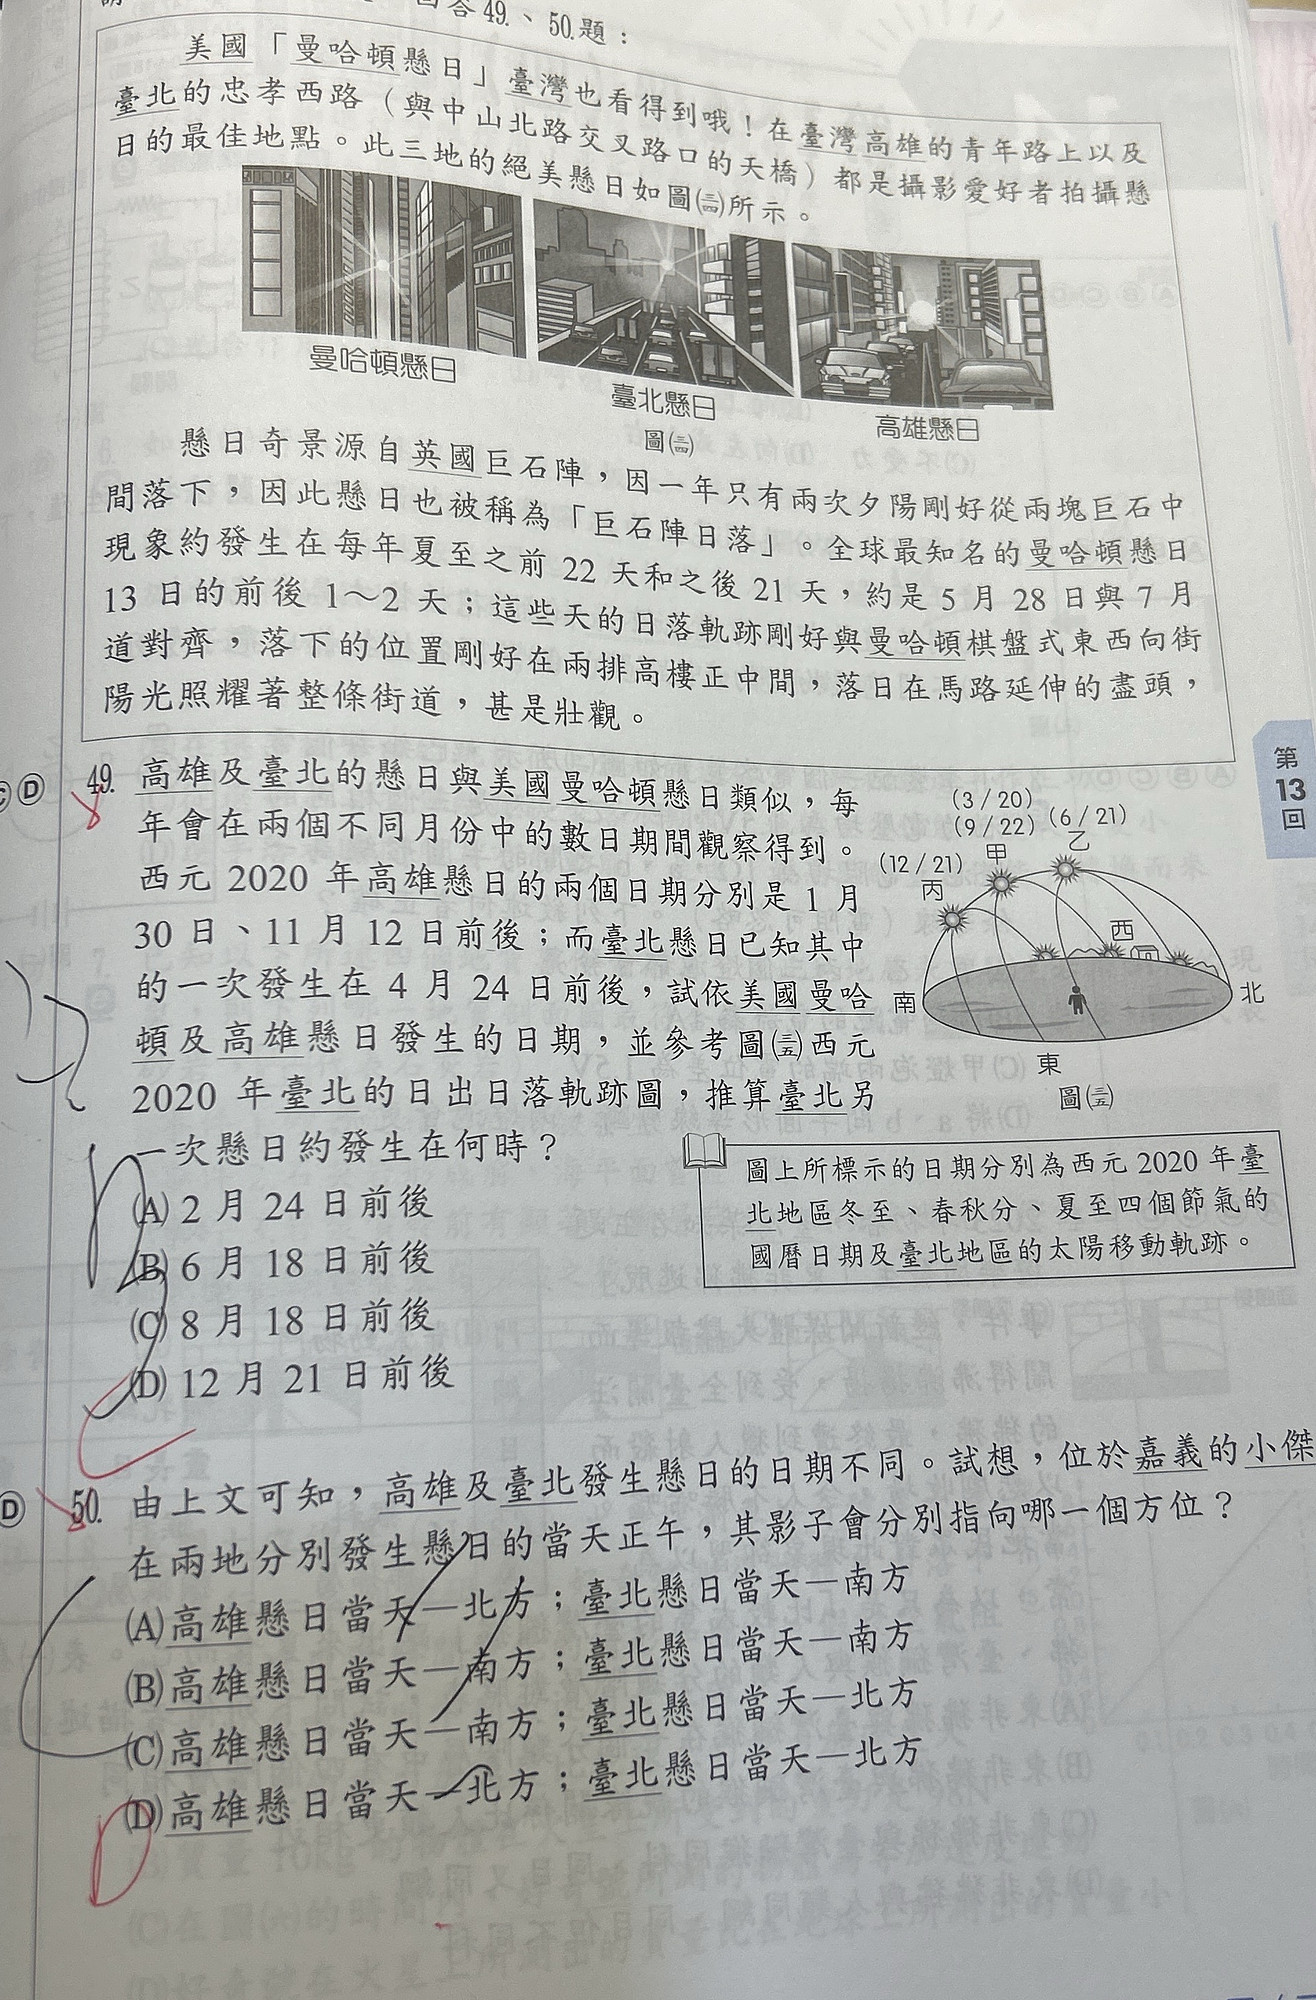 回答49.、50.題：
美國「曼哈頓懸日」臺灣也看得到哦！在臺灣高雄的青年路上以及
臺北的忠孝西路（與中山北路交叉路口的天橋）都是攝影愛好者拍攝懸
日的最佳地點。此三地的絕美懸日如圖(三四)所示。
曼哈頓懸日
臺北懸日
高雄懸日
圖(三四)
懸日奇景源自英國巨石陣，因一年只有兩次夕陽剛好從兩塊巨石中
間落下，因此懸日也被稱為「巨石陣日落」。全球最知名的曼哈頓懸日
現象約發生在每年夏至之前 22 天和之後 21 天，約是 5 月 28 日與 7 月
13 日的前後 1～2 天；這些天的日落軌跡剛好與曼哈頓棋盤式東西向街
道對齊，落下的位置剛好在兩排高樓正中間，落日在馬路延伸的盡頭，
陽光照耀著整條街道，甚是壯觀。
第
13
回
Ⓓ
49. 高雄及臺北的懸日與美國曼哈頓懸日類似，每
年會在兩個不同月份中的數日期間觀察得到。
西元 2020 年高雄懸日的兩個日期分別是 1 月
30 日、11 月 12 日前後；而臺北懸日已知其中
的一次發生在 4 月 24 日前後，試依美國曼哈
頓及高雄懸日發生的日期，並參考圖(三五)西元
2020 年臺北的日出日落軌跡圖，推算臺北另
一次懸日約發生在何時？
(A) 2 月 24 日前後
(B) 6 月 18 日前後
(C) 8 月 18 日前後
(D) 12 月 21 日前後
(3 / 20)
(9 / 22)
甲
(6 / 21)
乙
(12 / 21)
丙
西
南
北
東
圖(三五)
圖上所標示的日期分別為西元 2020 年臺
北地區冬至、春秋分、夏至四個節氣的
國曆日期及臺北地區的太陽移動軌跡。
Ⓓ
50. 由上文可知，高雄及臺北發生懸日的日期不同。試想，位於嘉義的小傑
在兩地分別發生懸日的當天正午，其影子會分別指向哪一個方位？
(A)高雄懸日當天—北方；臺北懸日當天—南方
(B)高雄懸日當天—南方；臺北懸日當天—南方
(C)高雄懸日當天—南方；臺北懸日當天—北方
(D)高雄懸日當天—北方；臺北懸日當天—北方
D